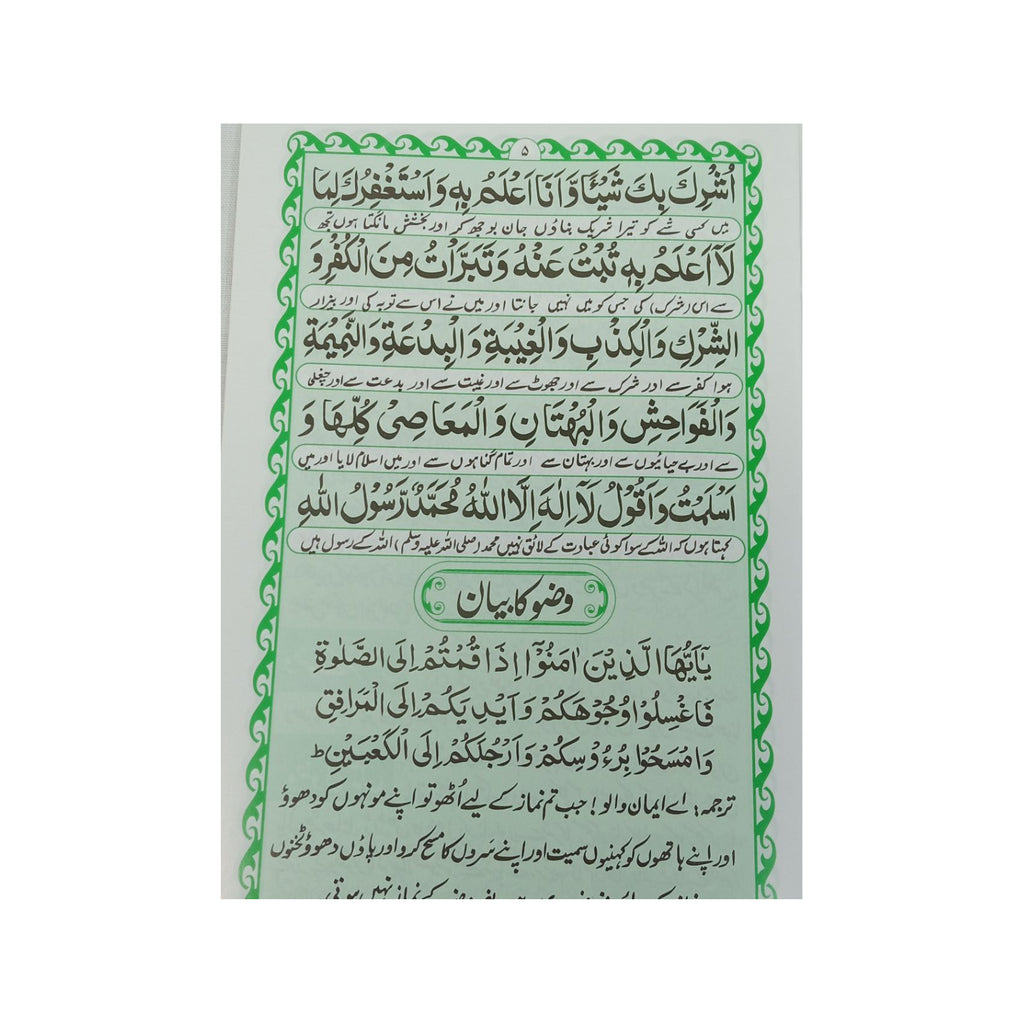 ۵
اُشْرِكَ بِكَ شَيْئًا وَّاَنَا اَعْلَمُ بِهٖ وَاَسْتَغْفِرُكَ لِمَا
میں کسی شے کو تیرا شریک بناؤں جان بوجھ کر اور بخشش مانگتا ہوں تجھ
لَآ اَعْلَمُ بِهٖ تُبْتُ عَنْهُ وَتَبَرَّاْتُ مِنَ الْكُفْرِ وَ
سے اس (شرک) کی جس کو میں نہیں جانتا اور میں نے اس سے توبہ کی اور بیزار
الشِّرْكِ وَالْكِذْبِ وَالْغِيْبَةِ وَالْبِدْعَةِ وَالنَّمِيْمَةِ
ہوا کفر سے اور شرک سے اور جھوٹ سے اور غیبت سے اور بدعت سے اور چغلی
وَالْفَوَاحِشِ وَالْبُهْتَانِ وَالْمَعَاصِىْ كُلِّهَا وَ
سے اور بے حیائیوں سے اور بہتان سے اور تمام گناہوں سے اور میں اسلام لایا اور میں
اَسْلَمْتُ وَاَقُوْلُ لَآ اِلٰهَ اِلَّا اللهُ مُحَمَّدٌ رَّسُوْلُ اللهِ
کہتا ہوں کہ اللہ کے سوا کوئی عبادت کے لائق نہیں محمد (صلی اللہ علیہ وسلم) اللہ کے رسول ہیں
وضو کا بیان
يٰٓاَيُّهَا الَّذِيْنَ اٰمَنُوْٓا اِذَا قُمْتُمْ اِلَى الصَّلٰوةِ
فَاغْسِلُوْا وُجُوْهَكُمْ وَاَيْدِيَكُمْ اِلَى الْمَرَافِقِ
وَامْسَحُوْا بِرُءُوْسِكُمْ وَاَرْجُلَكُمْ اِلَى الْكَعْبَيْنِ ؕ
ترجمہ: اے ایمان والو! جب تم نماز کے لیے اُٹھو تو اپنے مونہوں کو دھوؤ
اور اپنے ہاتھوں کو کہنیوں سمیت اور اپنے سَروں کا مسح کرو اور پاؤں دھوؤ ٹخنوں